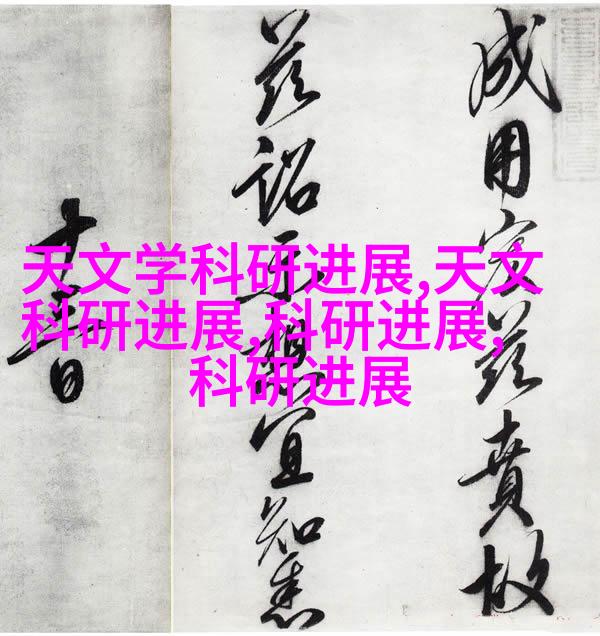 天文学科研进展,天文
科研进展,科研进展,
科研进展
成用宏茲賁故
茲詔示想宜知悉
十日